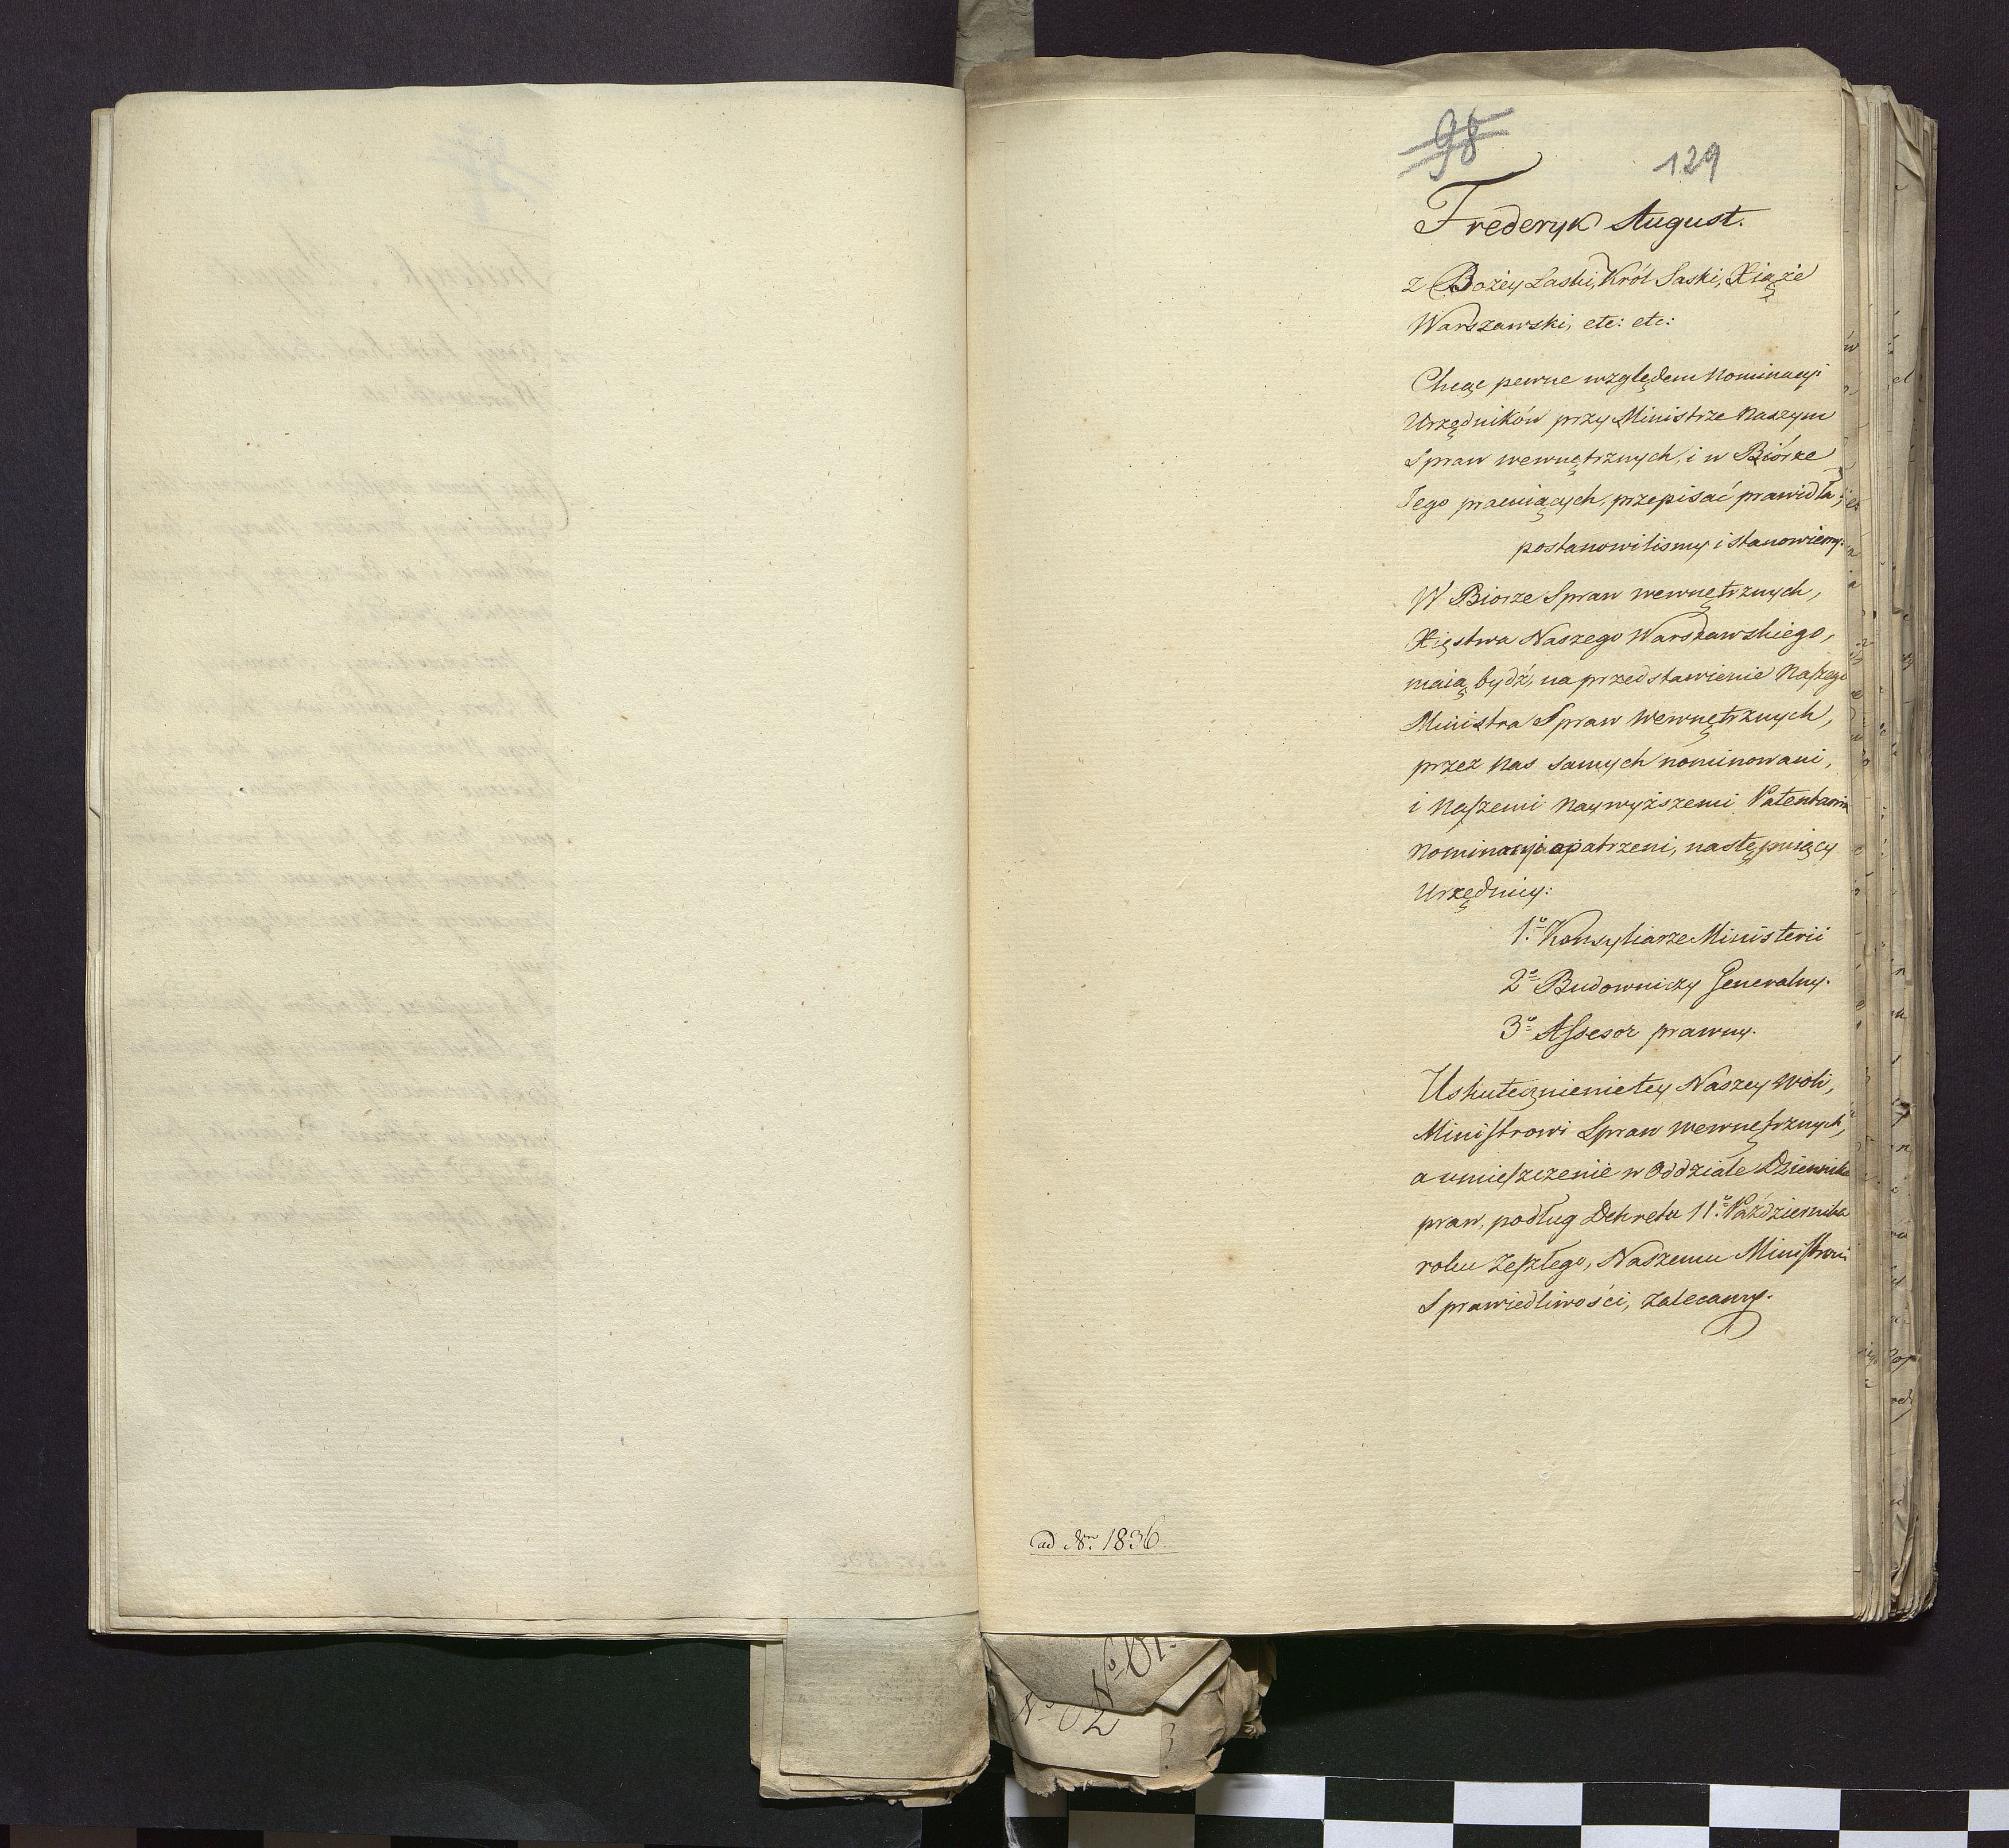 98
129
Frederyk August.
z Bożey Łaski, Król Saski, Xiąże
Warszawski, etc: etc:
Chcąc pewne względem Nominacyi
Urzędników przy Ministrze Naszym
Spraw wewnętrznych, i w Biórze
Jego pracuiących, przepisać prawidła;
postanowilismy i stanowiemy:
W Biorze Spraw wewnętrznych,
Xięstwa Naszego Warszawskiego,
maią bydź, na przedstawienie Naszego
Ministra Spraw Wewnętrznych,
przez Nas samych nominowani,
i Naszemi Naywyższemi Patentami
Nominacyi opatrzeni, następuiący
Urzędnicy:
1.o Konsyliarze Ministerii
2.o Budowniczy Generalny.
3.o Assesor prawny.
Uskutecznienie tey Naszey woli,
Ministrowi Spraw wewnętrznych,
a umieszczenie w Oddziale Dziennika
praw, podług Dekretu 11.o Października
roku zeszłego, Naszemu Ministrowi
Sprawiedliwości, zalecamy.
ad Nr. 1836.